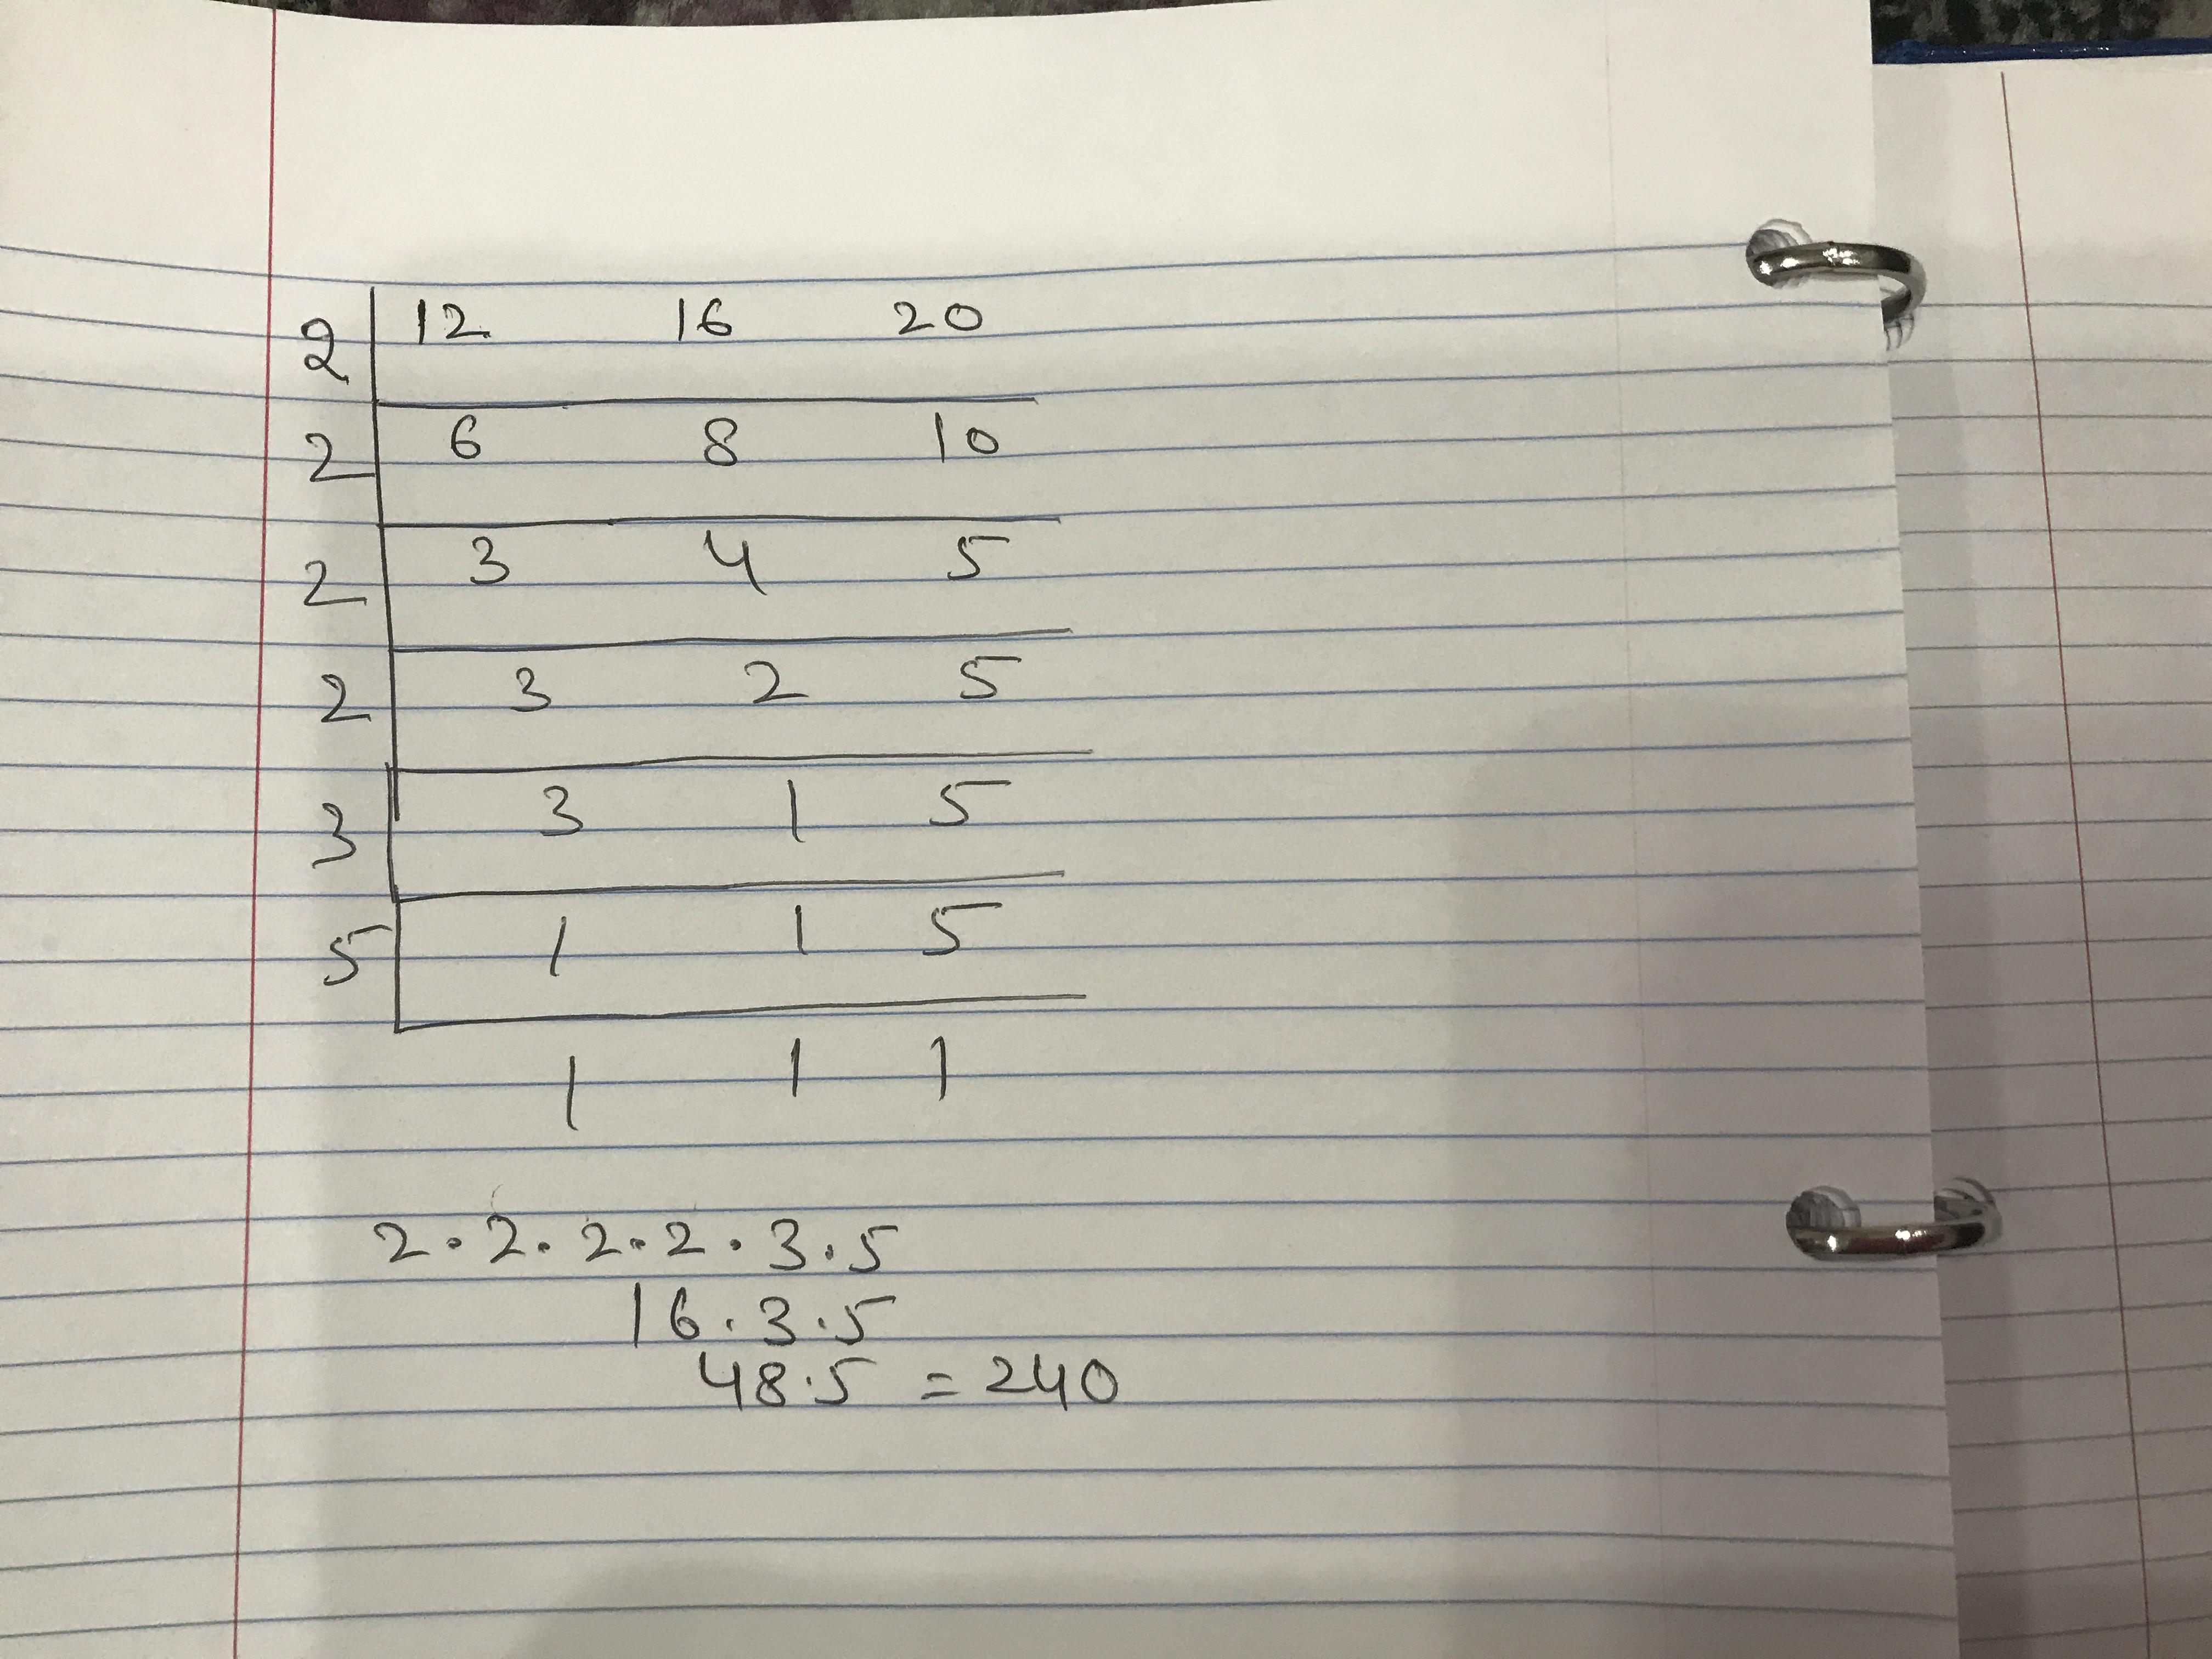 2 12 16 20
2 6 8 10
2 3 4 5
2 3 2 5
3 3 1 5
5 1 1 5
1 1 1
2 · 2 · 2 · 2 · 3 · 5
16 · 3 · 5
48 · 5 = 240